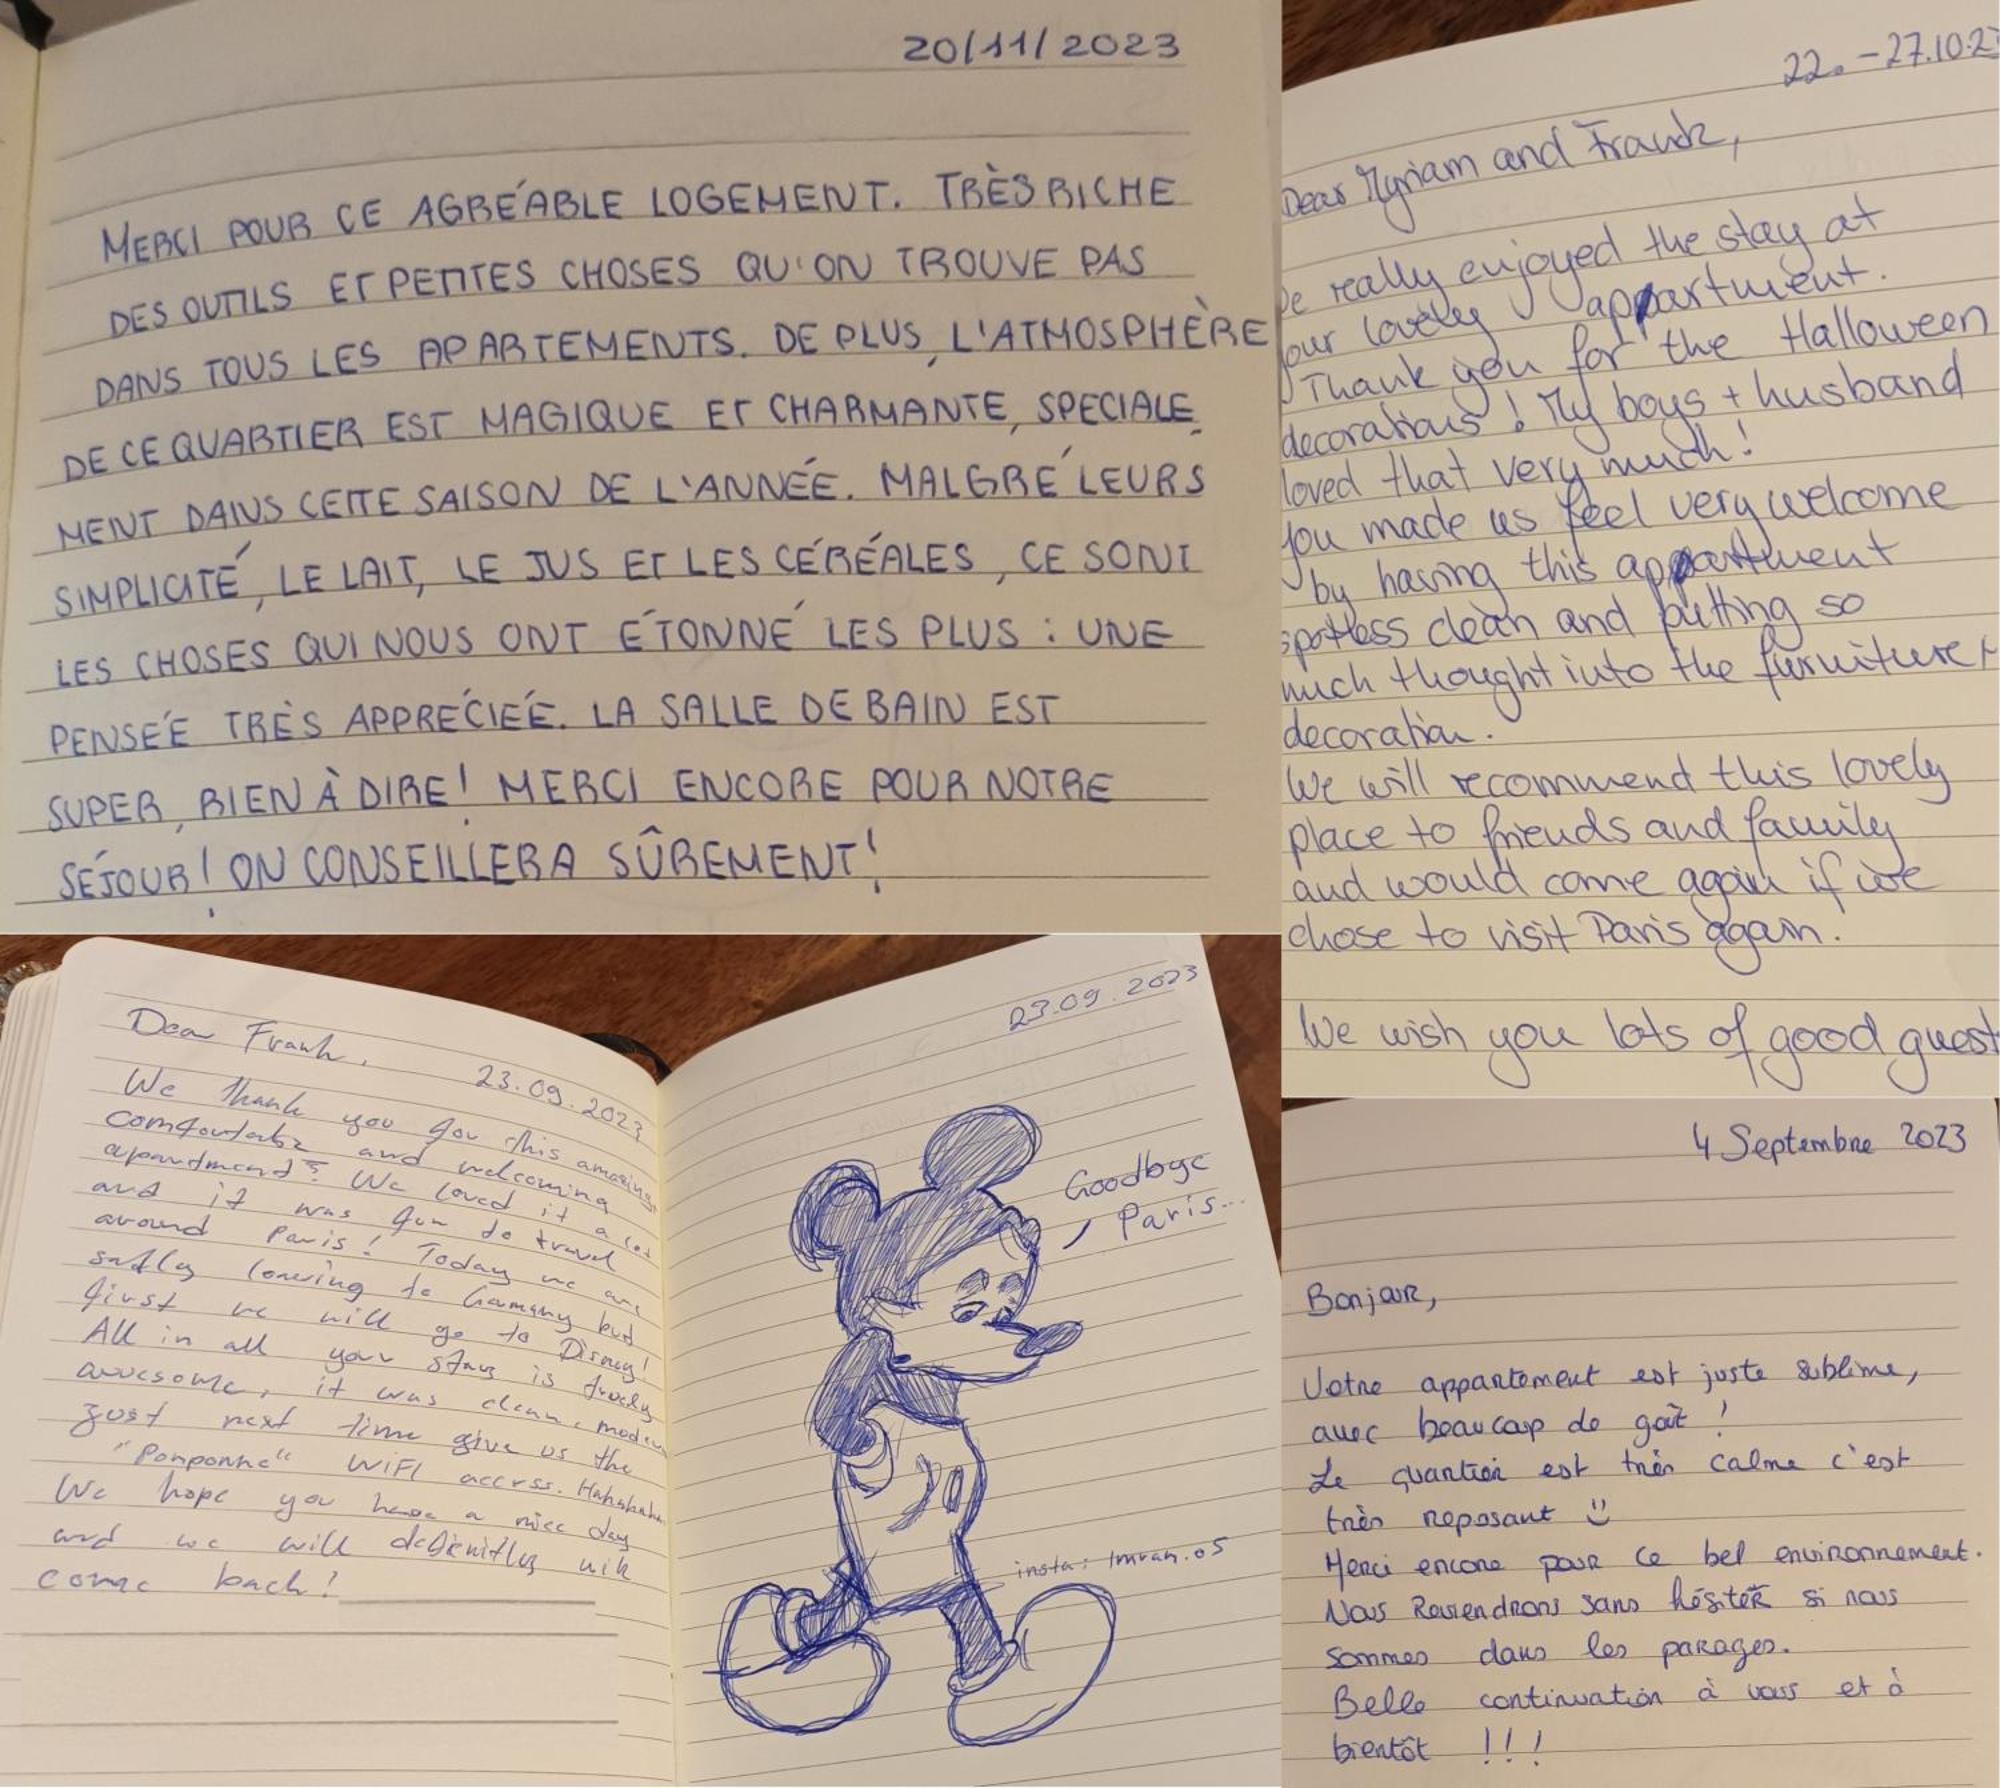 20/11/2023
MERCI POUR CE AGRÉABLE LOGEMENT. TRÈS RICHE
DES OUTILS ET PETITES CHOSES QU'ON TROUVE PAS
DANS TOUS LES APARTEMENTS. DE PLUS, L'ATMOSPHÈRE
DE CE QUARTIER EST MAGIQUE ET CHARMANTE, SPECIALE
MENT DANS CETTE SAISON DE L'ANNÉE. MALGRÉ LEURS
SIMPLICITÉ, LE LAIT, LE JUS ET LES CÉRÉALES, CE SONT
LES CHOSES QUI NOUS ONT ÉTONNÉ LES PLUS : UNE
PENSÉE TRÈS APPRÉCIÉE. LA SALLE DE BAIN EST
SUPER, RIEN À DIRE! MERCI ENCORE POUR NOTRE
SÉJOUR! ON CONSEILLERA SÛREMENT!
22. - 27.10.2
Dear Myriam and Frank,
e really enjoyed the stay at
our lovely appartment.
Thank you for the Halloween
decorations! My boys + husband
loved that very much!
you made us feel very welcome
by having this appartment
spotless clean and putting so
much thought into the furniture +
decoration.
We will recommend this lovely
place to friends and family
and would come again if we
chose to visit Paris again.
We wish you lots of good guest
Dear Frank,
23.09.2023
We thank you for this amazing,
comfortable and welcoming
apartment! We loved it a lot
and it was fun to travel
around Paris! Today we are
sadly leaving to Germany but
first we will go to Disney!
All in all your stay is truely
awesome, it was clean, modern
Just next time give us the
"Ponponne" WIFI access. Hahahaha
We hope you have a nice day
and we will definitley
come back!
23.09.2023
Goodbye
Paris...
insta: Imran.05
4 Septembre 2023
Bonjour,
Votre appartement est juste sublime,
avec beaucoup de goût !
Le quartier est très calme c'est
très reposant
Merci encore pour ce bel environnement.
Nous Reviendrons sans hésiter si nous
sommes dans les parages.
Belle continuation à vous et à
bientôt !!!